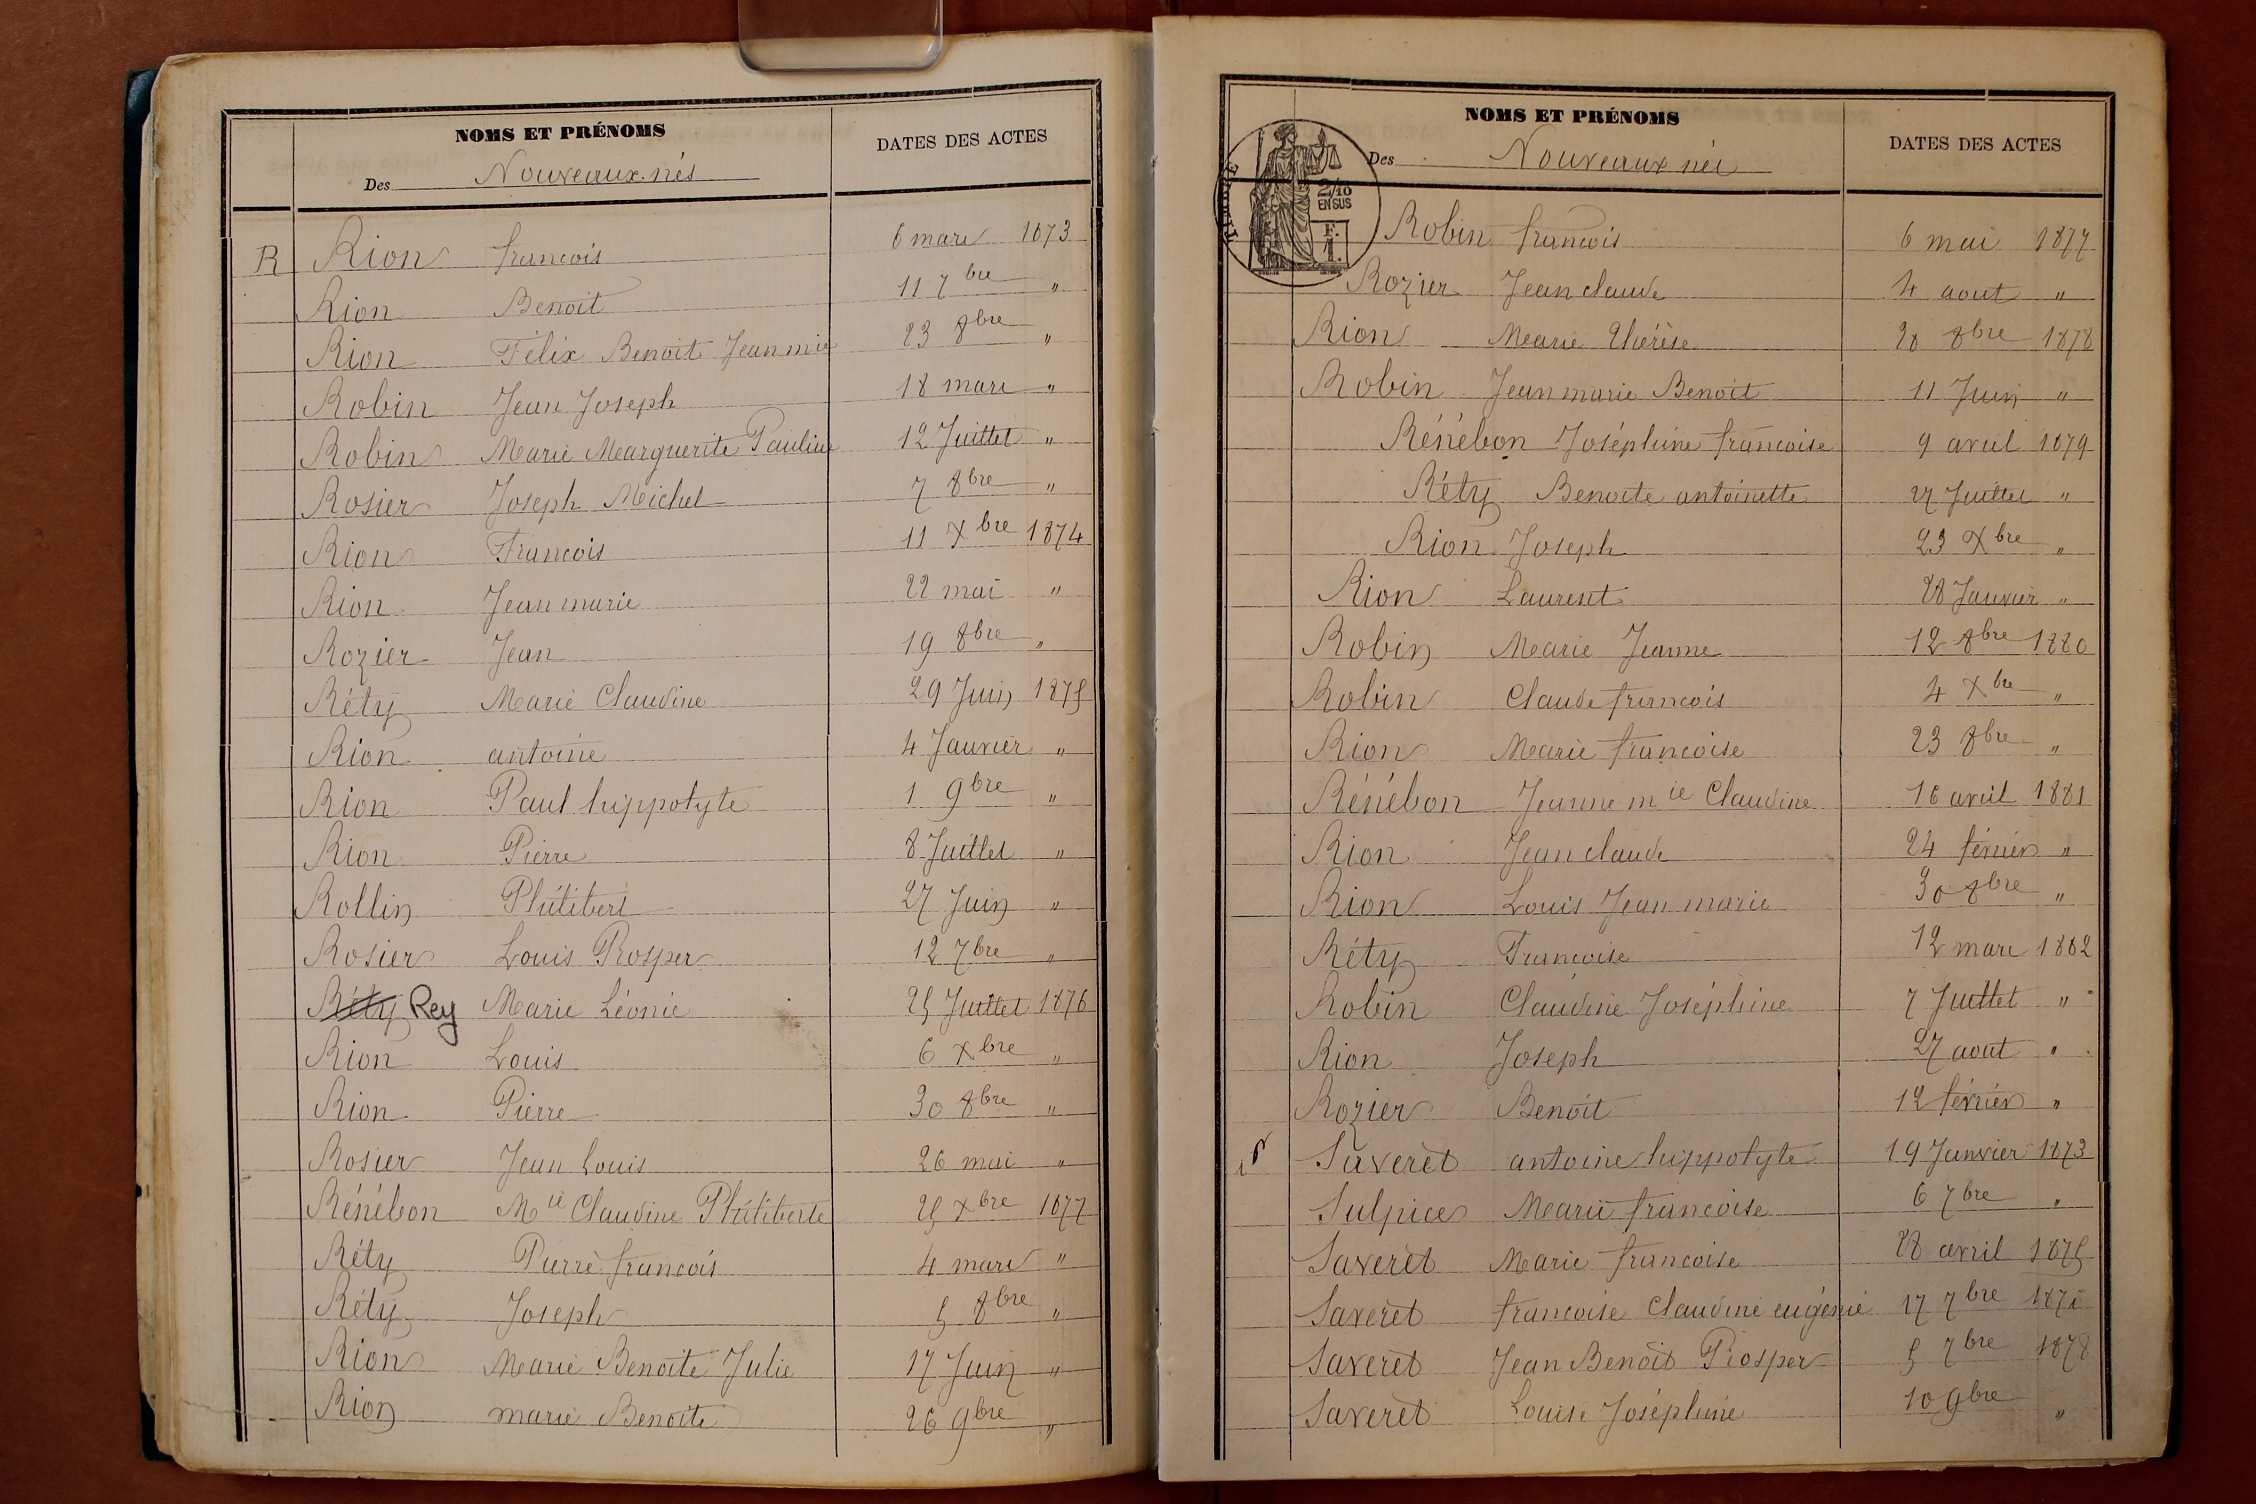 NOMS ET PRÉNOMS
DATES DES ACTES
Des Nouveaux-nés
R Rion francois 6 mars 1873
Rion Benoit 11 7bre "
Rion Félix Benoit Jean mie 23 8bre "
Robin Jean Joseph 18 mars "
Robin Marie Marguerite Pauline 12 Juillet "
Rosier Joseph Michel 7 8bre "
Rion Francois 11 Xbre 1874
Rion Jean marie 22 mai "
Rozier Jean 19 8bre "
Réty Marie Claudine 29 Juin 1875
Rion antoine 4 Janvier "
Rion Paul hippolyte 1 9bre "
Rion Pierre 8 Juillet "
Rollin Philibert 27 Juin "
Rosier Louis Prosper 12 7bre "
Réty Rey Marie Léonie 25 Juillet 1876
Rion Louis 6 Xbre "
Rion Pierre 30 8bre "
Rosier Jean Louis 26 mai "
Rénébon Mie Claudine Philiberte 25 Xbre 1877
Réty Pierre francois 4 mars "
Réty Joseph 5 8bre "
Rion Marie Benoite Julie 17 Juin "
Rion marie Benoite 26 9bre "
NOMS ET PRÉNOMS
DATES DES ACTES
Des Nouveaux nés
2/10
EN SUS
F.
1.
Robin francois 6 mai 1877
Rozier Jean claude 4 aout "
Rion Marie Thérèse 28 8bre 1878
Robin Jean marie Benoit 11 Juin "
Rénébon Joséphine francoise 9 avril 1879
Réty Benoite antoinette 27 Juillet "
Rion Joseph 23 Xbre "
Rion Laurent 28 Janvier "
Robin Marie Jeanne 12 8bre 1880
Robin Claude francois 4 Xbre "
Rion Marie francoise 23 8bre "
Rénébon Jeanne mie Claudine 16 avril 1881
Rion Jean claude 24 février "
Rion Louis Jean marie 30 8bre "
Réty Francoise 12 mars 1882
Robin Claudine Joséphine 7 Juillet "
Rion Joseph 27 aout "
Rozier Benoit 12 février "
S Saveret antoine hippolyte 19 Janvier 1873
Sulpice Marie francoise 6 7bre "
Saveret Marie francoise 28 avril 1875
Saveret francoise Claudine eugénie 17 7bre
Saveret Jean Benoit Prosper 5 7bre 1878
Saveret Louise Joséphine 10 9bre "